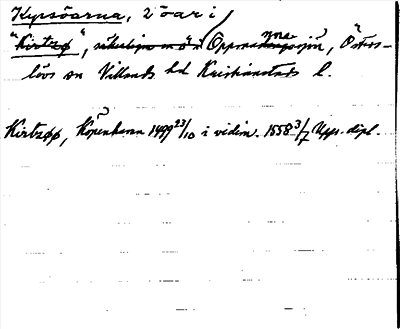 Kyrsöarna, 2 öar i
"Kirtzø", Oppmannasjön, Östers-
lövs sn Villands hd Kristianstads l.
Kirtzøø, Köpenhamn 1499 23/10 i vidim. 1558 3/7 Upps. dipl.